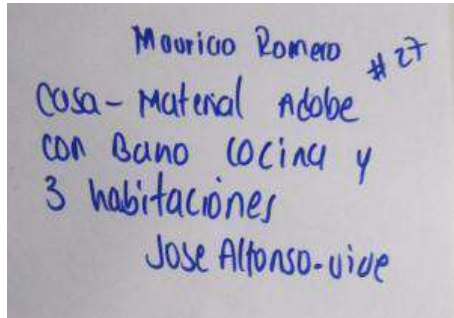 Mauricio Romero #27
Casa-Material Adobe
con Bano Cocina y
3 habitaciones
Jose Alfonso-vive